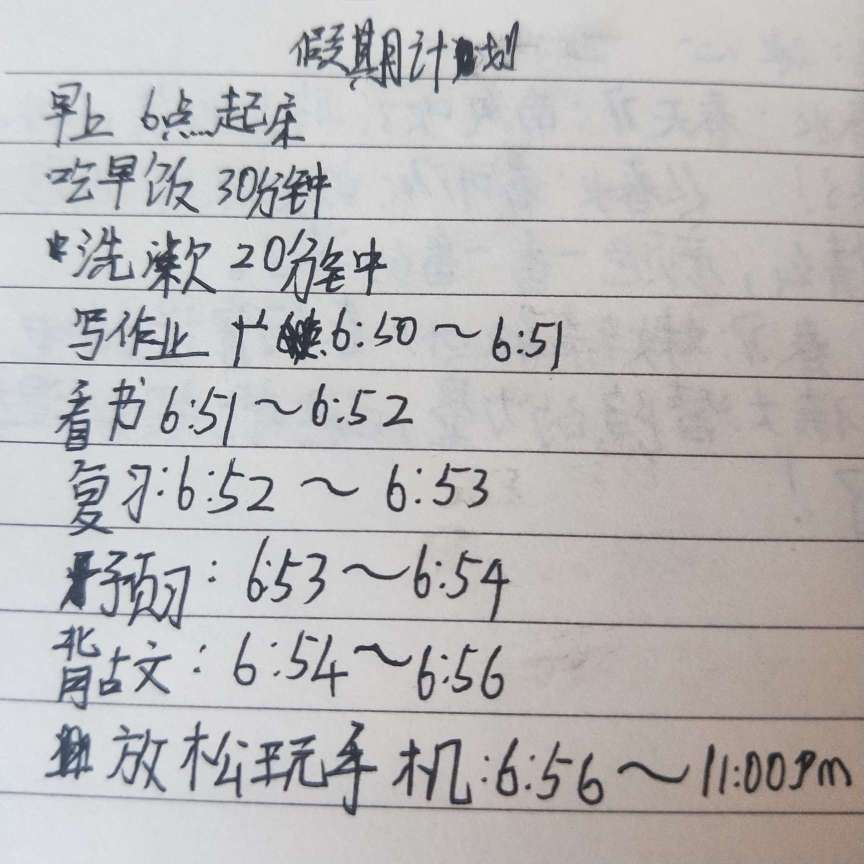 假期计划
早上 6点起床
吃早饭 30分钟
洗漱 20分钟
写作业 6:50～6:51
看书 6:51～6:52
复习:6:52～6:53
预习:6:53～6:54
背古文:6:54～6:56
放松玩手机:6:56～11:00pm